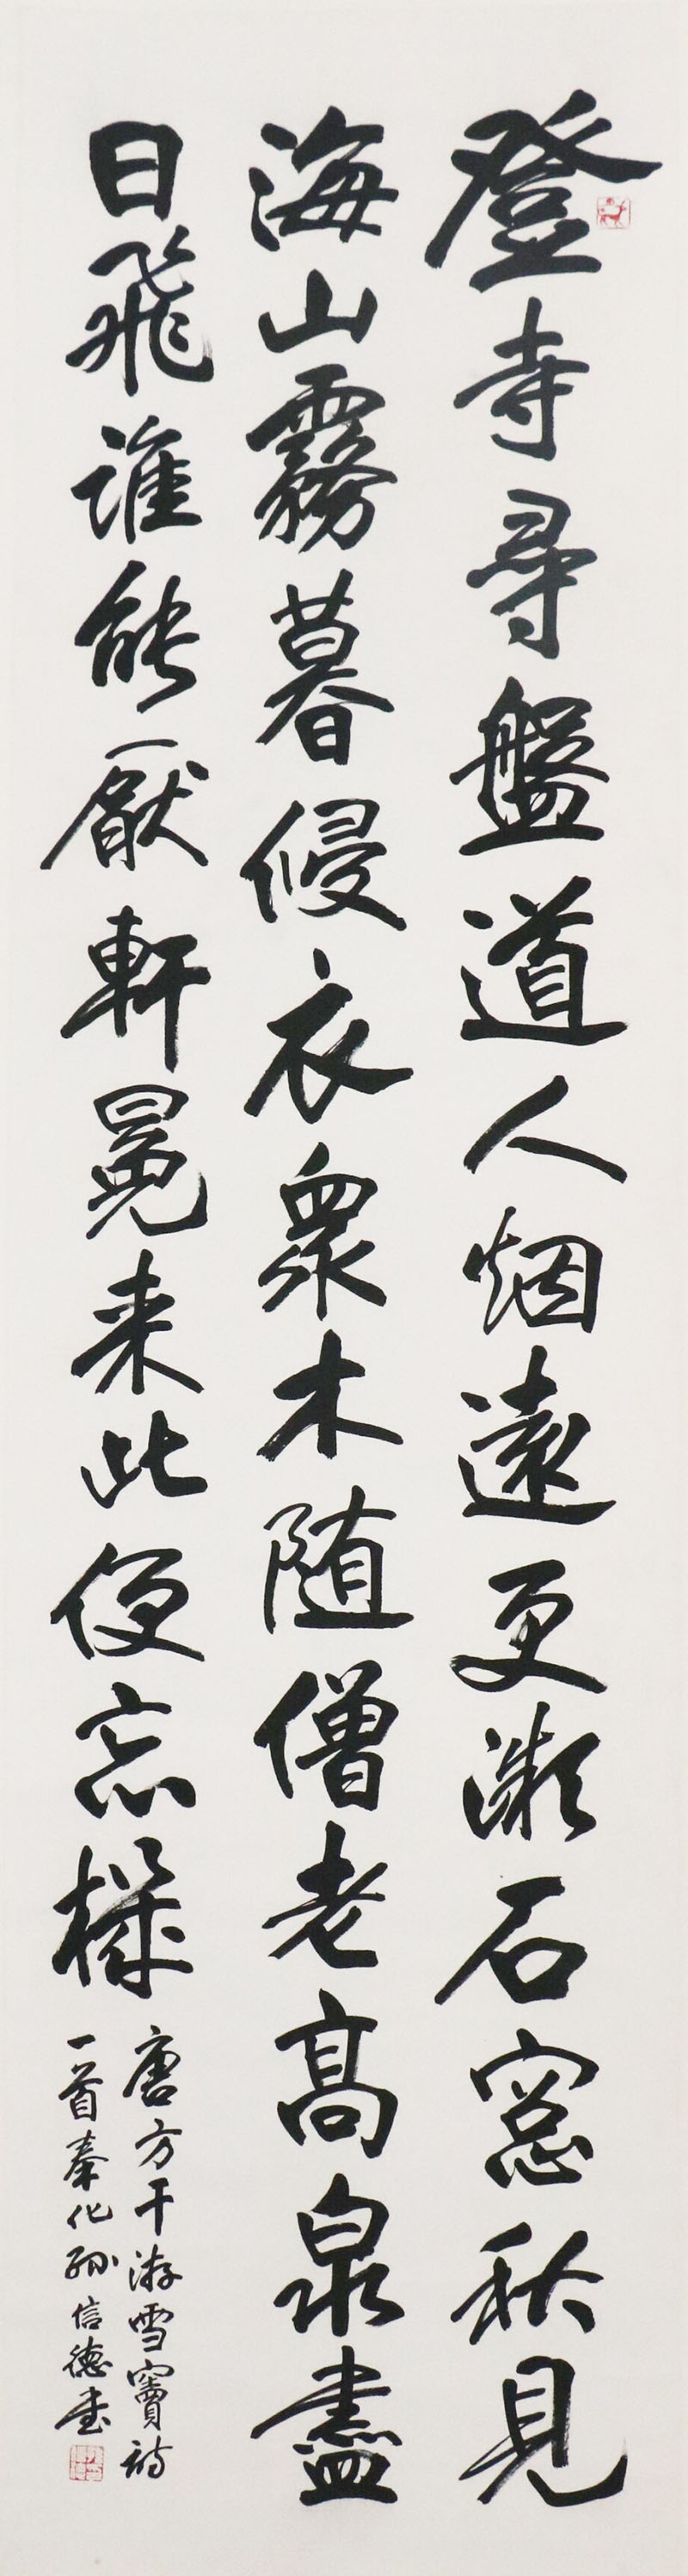 登寺尋盤道人烟遠更微石窓秋見
海山霧暮侵衣衆木随僧老高泉盡
日飛誰能厭軒冕来此便忘機
唐方干游雪竇詩
一首奉化孫信德書